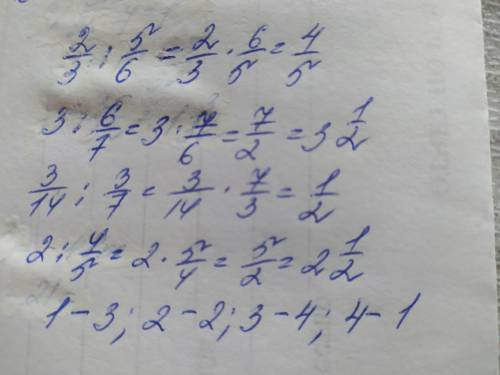 2/3 : 5/6 = 2/3 · 6/5 = 4/5
3 : 6/7 = 3 · 7/6 = 7/2 = 3 1/2
3/14 : 3/7 = 3/14 · 7/3 = 1/2
2 : 4/5 = 2 · 5/4 = 5/2 = 2 1/2
1 - 3; 2 - 2; 3 - 4; 4 - 1